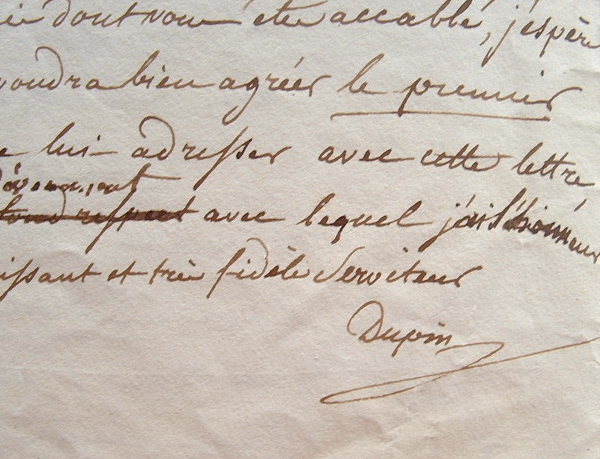 dont vous êtes accablé, j'espère
voudra bien agréer le premier
lui adresser avec cette lettre
dévouement
respect avec lequel j'ai l'honneur
issant et très fidèle Serviteur
Dupin